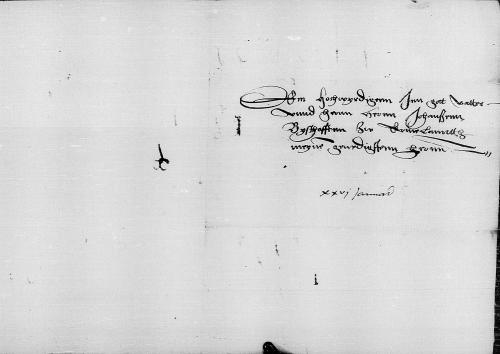 Dem hochwirdigenn Inn got vatter
vnnd herrn herrn Johanssenn
Byschoffenn zw
meyne gnedigstenn herrnn
xxvj Januarij